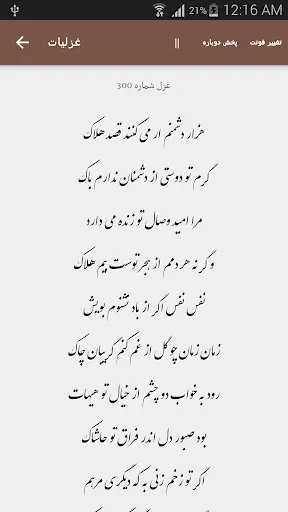 21% 12:16 AM
غزلیات || پخش دوباره تغییر فونت
غزل شماره 300
هزار دشمنم ار می کنند قصد هلاک
گرم تو دوستی از دشمنان ندارم باک
مرا امید وصال تو زنده می دارد
و گر نه هر دمم از هجر توست بیم هلاک
نفس نفس اگر از باد نشنوم بویش
زمان زمان چو گل از غم کنم گریبان چاک
رود به خواب دو چشم از خیال تو هیهات
بود صبور دل اندر فراق تو حاشاک
اگر تو زخم زنی به که دیگری مرهم